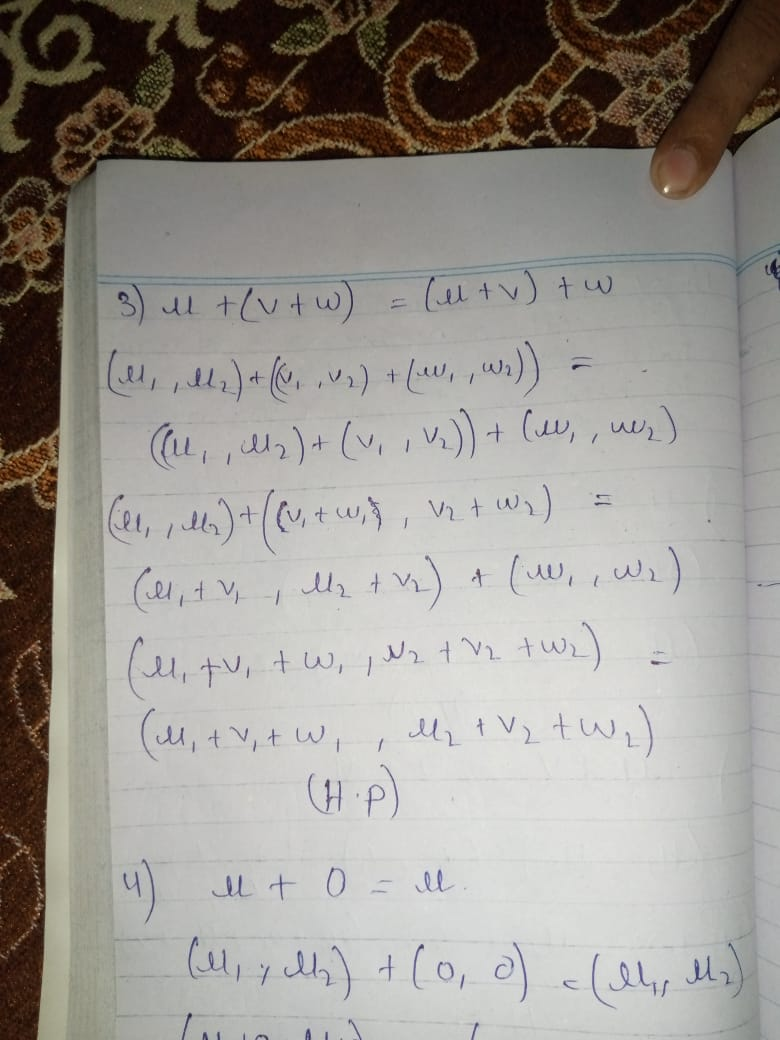 3) u + (v + w) = (u + v) + w
(u₁ , u₂) + ((v₁ , v₂) + (w₁ , w₂)) =
((u₁ , u₂) + (v₁ , v₂)) + (w₁ , w₂)
(u₁ , u₂) + ((v₁ + w₁ , v₂ + w₂) =
(u₁ + v₁ , u₂ + v₂) + (w₁ , w₂)
(u₁ + v₁ + w₁ , u₂ + v₂ + w₂) =
(u₁ + v₁ + w₁ , u₂ + v₂ + w₂)
(H.P)
4) u + 0 = u.
(u₁ , u₂) + (0, 0) = (u₁, u₂)